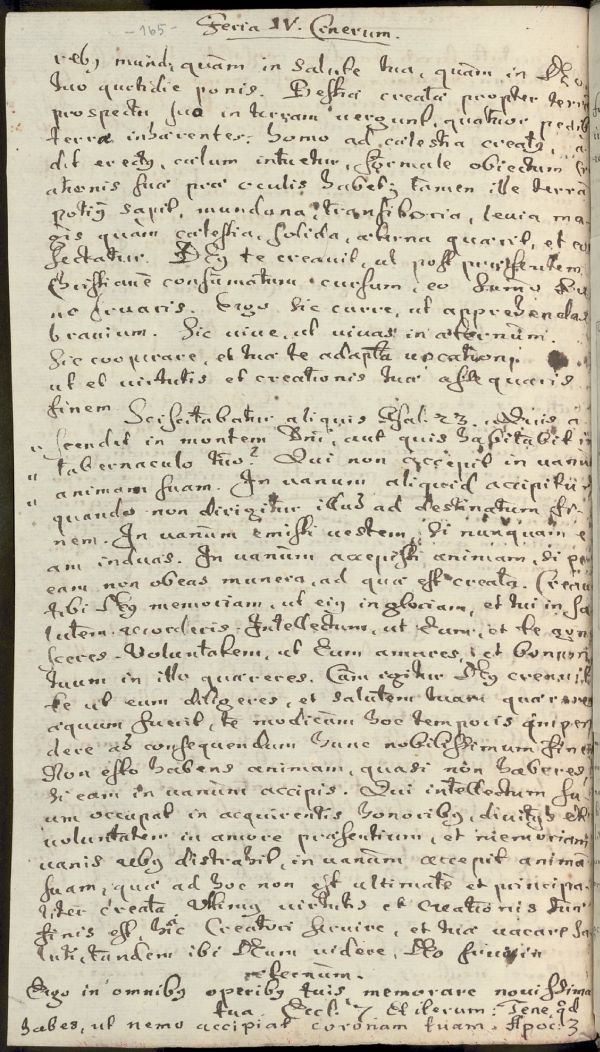 - 165 -
Feria IV. Cinerum.
reby mundi, quàm in salute tua, quàm in Deo
tuo quotidie ponis. Bestiæ creatæ propter terrã
prospectu suo in terram vergunt, quatuor pedib
terræ inhærentes: homo ad cælestia creaty, in-
dit erecty, cælum intuetur, formale obiectum
ationis suæ præ oculis habet; tamen ille terrã
potiy sapit, mundana, transitoria, levia ma-
gis quam cælestia, solida, æterna quærit, et con
sectatur. Dey te creavit, ut post præsentem
Christianè consumatum cursum, eo summo bo
no fruaris. Ergo sic curre, ut apprehendas
bravium. Sic vive, ut vivas in æternum.
Sic cooperare, et tuæ te adapta vocationi
ut et virtutis et creationis tuæ assequaris
finem.
Sciscitabatur aliquis Psal. 23. Quis a-
" scendit in montem Dni, aut quis habitabit in
" tabernaculo tuo? Qui non accepit in vanũ
" animam suam. In vanum aliquid accipitur
quando non dirigitur illud ad destinatum fi-
nem. In vanum emisti vestem, si nunquam e
am induas. In vanum accepisti animam, si per
eam non obeas munera, ad quæ est creata. Creav
tibi Dey memoriam, ut eiy in gloriam, et tui in sa
lutem recorderis. Intellectum, ut Eum, et te cogn
sceres. Voluntatem, ut Eum amares, et bonum
tuum in illo quæreres. Cum igitur Dey creavit
te ut eum diligeres, et salutem tuam quæreres
æquum fuerit, te modicum hoc temporis impen
dere ad consequendum hunc nobilissimum finem
Non esto habens animam, quasi non haberes,
si eam in vanum accipis. Qui intellectum su-
um occupat in acquirentis honoriby, divitijs et
voluntatem in amore præsentium, et memoriam
vanis reby distrahit, in vanum accepit animã
suam, quæ ad hoc non est ultimatè et principa-
liter creata. Ultimy virtutis et creationis tuæ
finis est, hîc Creatori servire, et tuæ vacare sa
luti, tandem ibi Deum videre, Deo frui in
æternum.
Ergo in omniby operiby tuis memorare novissima
tua. Eccl. 7. Et iterum: Tene qd
habes, ut nemo accipiat coronam tuam. Apoc. 3